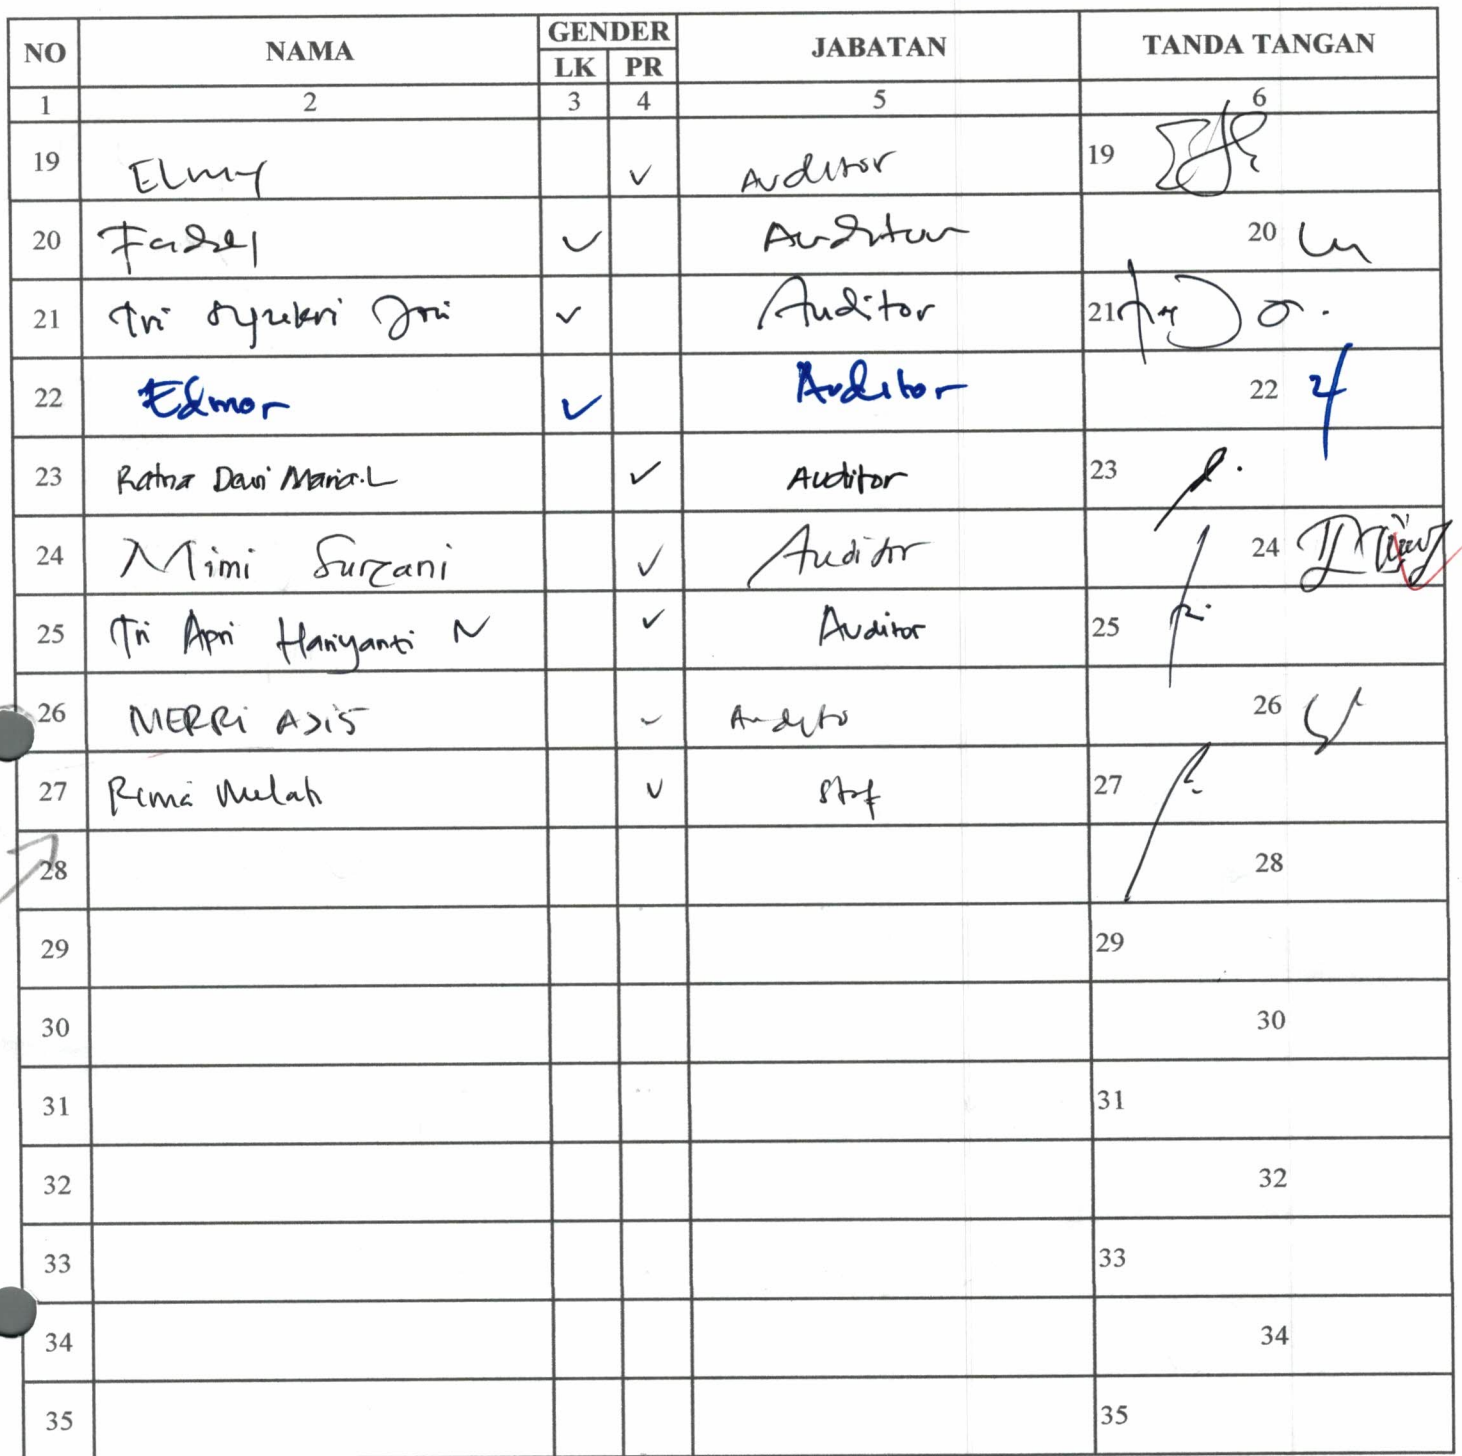 NO NAMA GENDER JABATAN TANDA TANGAN
LK PR
1 2 3 4 5 6
19 Elmy ✓ Auditor 19
20 Fadel ✓ Auditor 20
21 Tri Syukri ✓ Auditor 21
22 Edmor ✓ Auditor 22
23 Ratna Dewi Maria.L ✓ Auditor 23
24 Mimi Surzani ✓ Auditor 24
25 Tri Apri Hariyanti N ✓ Auditor 25
26 MERRi ASiS ✓ Auditor 26
27 Rima Melati ✓ Staf 27
28 28
29 29
30 30
31 31
32 32
33 33
34 34
35 35